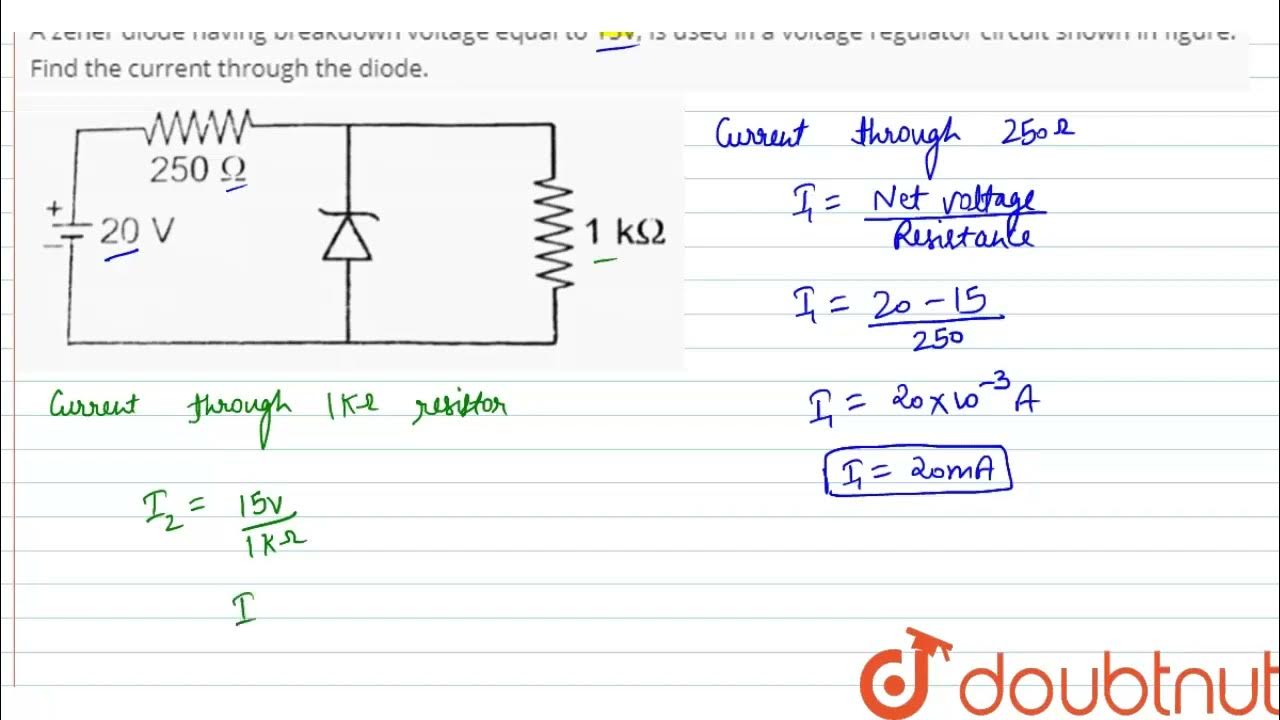 A zener diode having breakdown voltage equal to 15V, is used in a voltage regulator circuit shown in figure.
Find the current through the diode.
250 Ω
+
20 V
−
1 kΩ
Current through 250Ω
I₁ = Net voltage
Resistance
I₁ = 20 - 15
250
I₁ = 20 × 10⁻³ A
I₁ = 20mA
Current through 1KΩ resistor
I₂ = 15v
1KΩ
I
doubtnut